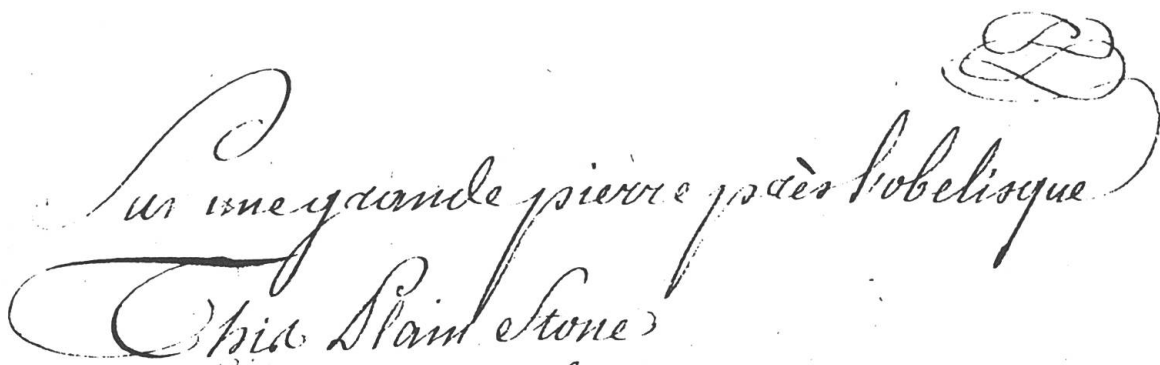 Sur une grande pierre près l'obelisque
This Plain Stone